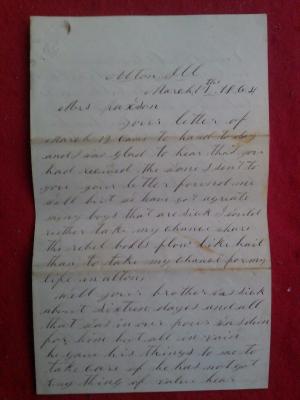 Alton Ill
March 17th 1864
Mrs
your letter of
March 12 came to hand to day
and I was glad to hear that you
had received the same sent to
you your letter found me
well but we have got a great
many boys that are sick I would
rather take my chance where
the rebel bolts flow like hail
than to take my chance for my
life in alton,
well your brother was sick
about sixteen days and all
that was in our power was done
for him but all in vain
he gave his things to me to
take care of he has not got
any thing of value hear